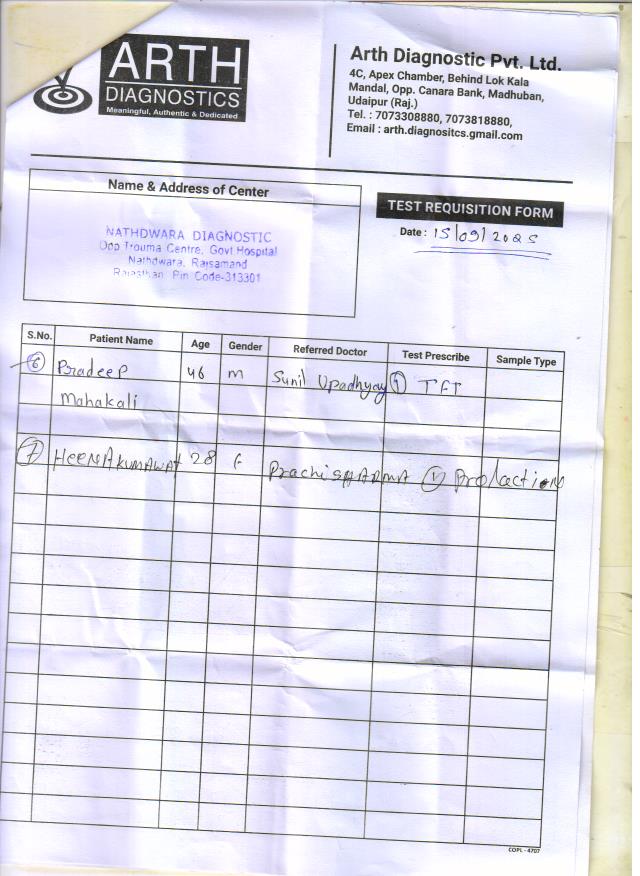 ARTH
DIAGNOSTICS
Meaningful, Authentic & Dedicated
Arth Diagnostic Pvt. Ltd.
4C, Apex Chamber, Behind Lok Kala
Mandal, Opp. Canara Bank, Madhuban,
Udaipur (Raj.)
Tel. : 7073308880, 7073818880,
Email : arth.diagnositcs.gmail.com
Name & Address of Center
NATHDWARA DIAGNOSTIC
Opp Trouma Centre, Govt Hospital
Nathdwara, Rajsamand
Rajasthan Pin Code-313301
TEST REQUISITION FORM
Date : 15/09/2025
S.No. Patient Name Age Gender Referred Doctor Test Prescribe Sample Type
6 Pradeep 46 m Sunil Upadhyay 1 TFT
Mahakali
7 HEENA KUMAWAT 28 F Prachi SHARMA 1 Prolaction
COPL - 4707